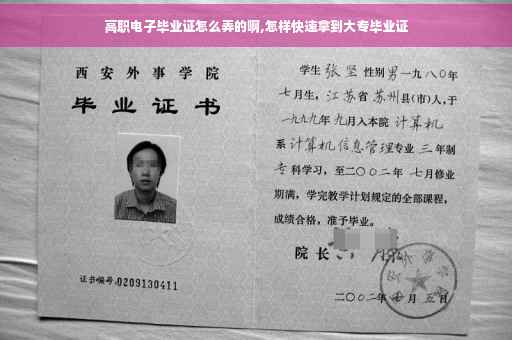 高职电子毕业证怎么弄的啊,怎样快速拿到大专毕业证
西安外事学院
毕业证书
证书编号:0209130411
学生 张坚 性别 男 一九八〇年
七月生, 江苏省 苏州 县(市)人,于
一九九九年 九月入本院 计算机
系 计算机信息管理 专业 三 年制
专 科学习,至二〇〇二年 七月修业
期满,学完教学计划规定的全部课程,
成绩合格,准予毕业。
院长
二〇〇二年 月 五日